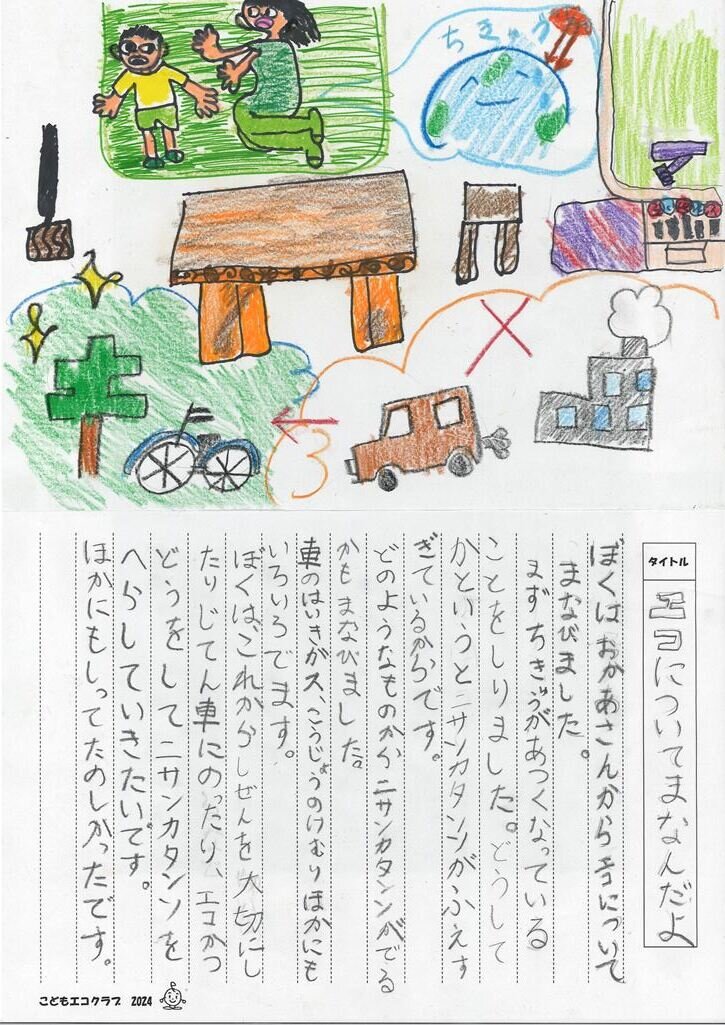 ちきゅう
タイトル
エコについてまなんだよ
ぼくはおかあさんからエコについて
まなびました。
まずちきゅうがあつくなっている
ことをしりました。どうして
かというとニサンカタンソがふえす
ぎているからです。
どのようなものからニサンカタンソがでる
かもまなびました。
車のはいきガス、こうじょうのけむりほかにも
いろいろでます。
ぼくは、これからしぜんを大切にし
たりじてん車にのったり、エコかつ
どうをしてニサンカタンソを
へらしていきたいです。
ほかにもしってたのしかったです。
こどもエコクラブ 2024